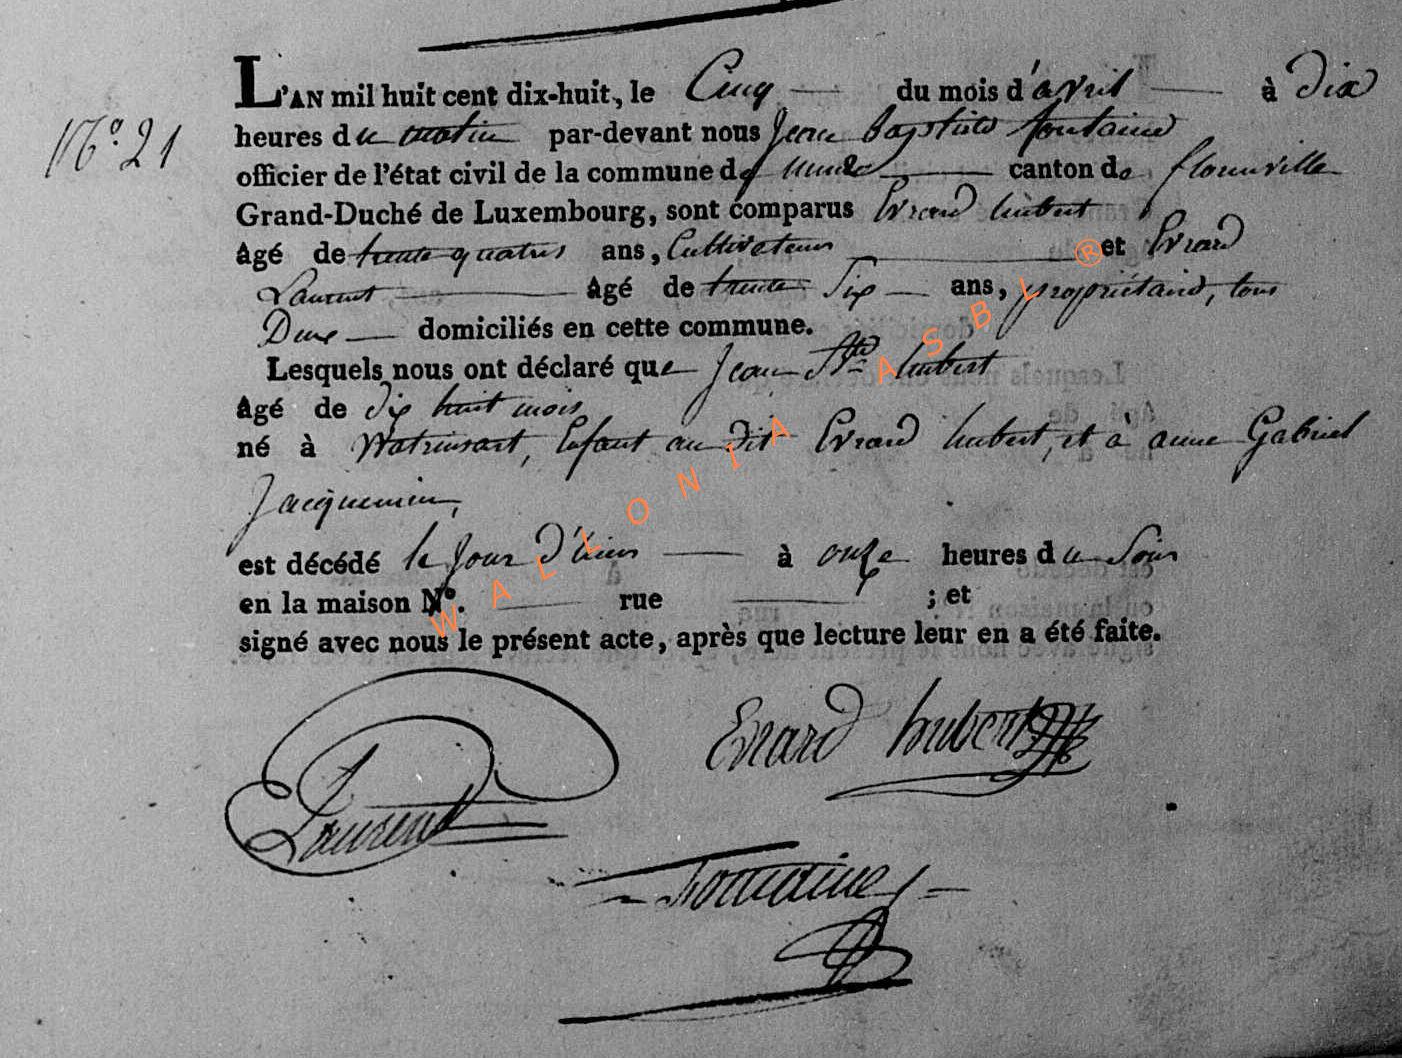 L'AN mil huit cent dix-huit, le Cinq du mois d'avril à Dix
N.o 21
heures du matin par-devant nous Jean baptiste fontaine
officier de l'état civil de la commune de canton de florenville
Grand-Duché de Luxembourg, sont comparus Evrard hubert
âgé de trente quatres ans, Cultivateur et Evrard
Laurent âgé de trente Six ans, propriétaire, tous
Deux domiciliés en cette commune.
Lesquels nous ont déclaré que Jean Bte hubert
âgé de dix huit mois
né à Watrinsart, Enfant au dit Evrard hubert, et à anne Gabriel
Jacquemin,
est décédé le Jour d'hier à onze heures du Soir
en la maison N.o rue ; et
signé avec nous le présent acte, après que lecture leur en a été faite.
Evrard hubert
Laurent
Fontaine
WALLONIA ASBL ®